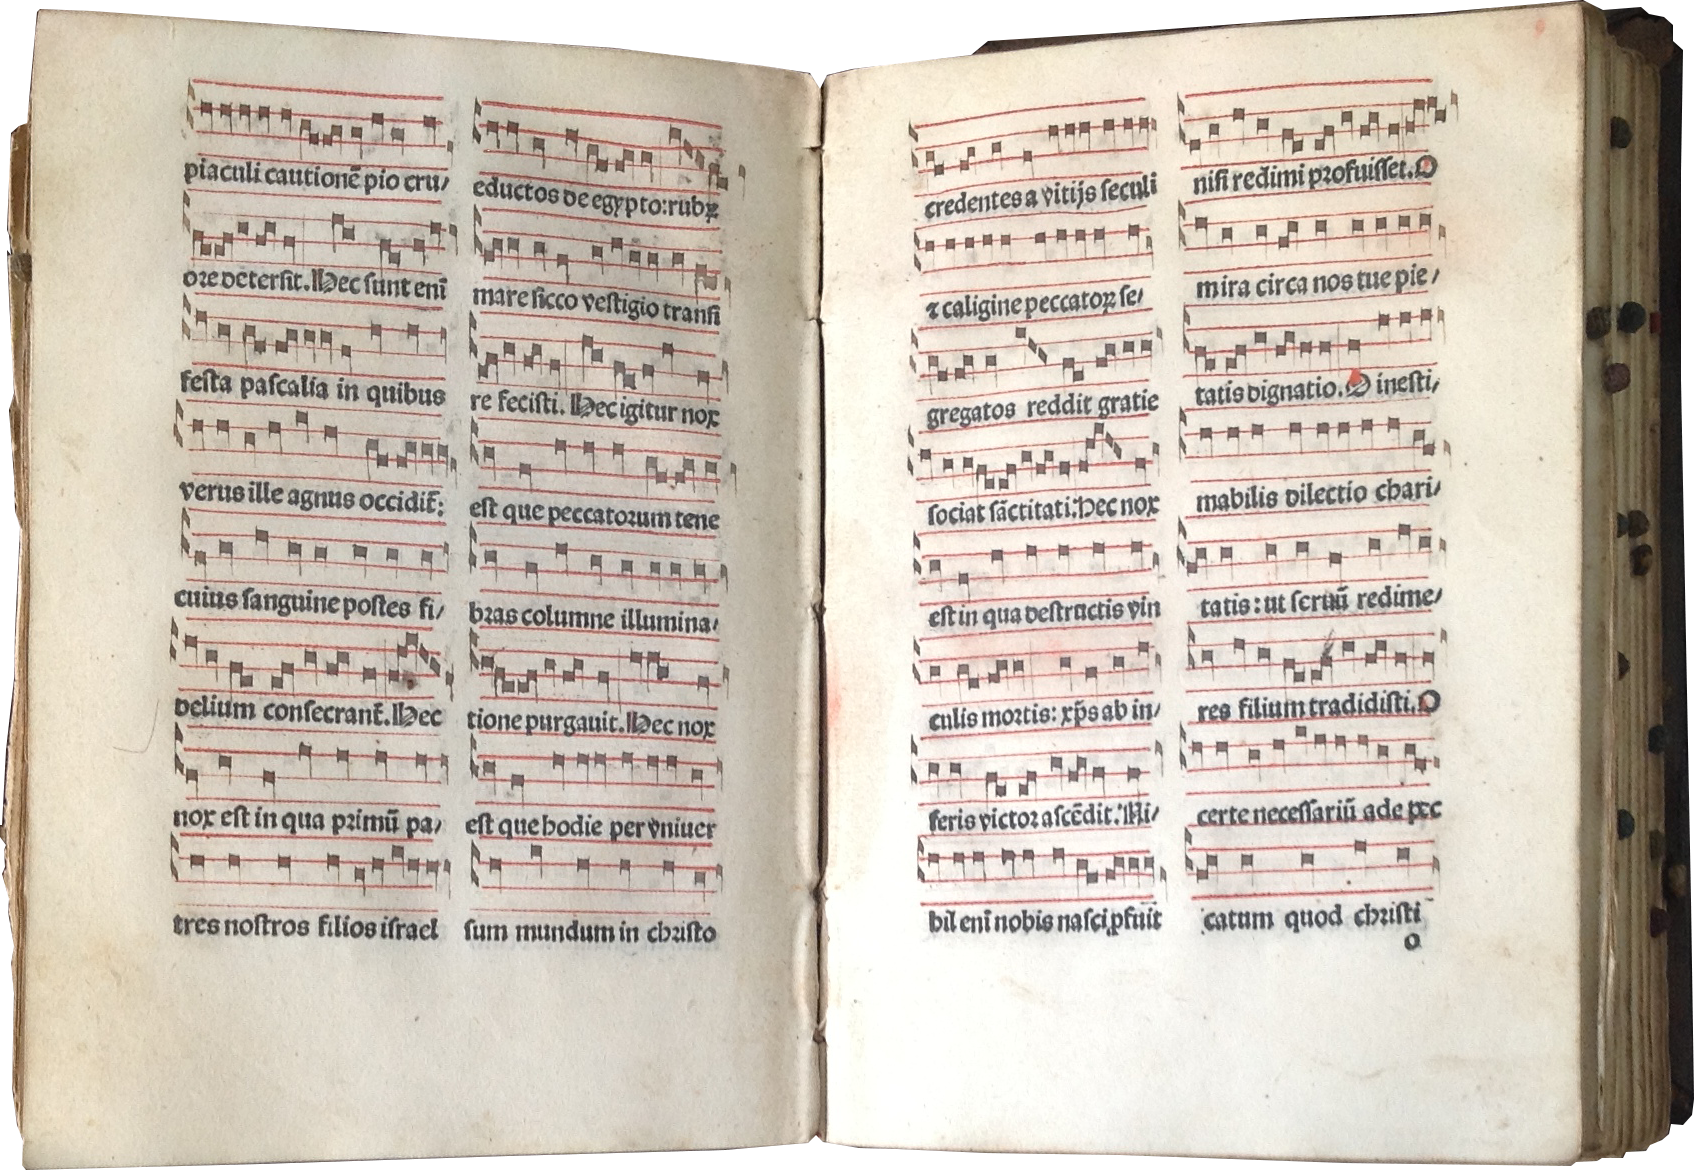 piaculi cautionē pio cru/
ore detersit. Hec sunt eni̅
festa pascalia in quibus
verus ille agnus occidit̄:
cuius sanguine postes fi/
delium consecrant̄. Hec
nox est in qua primū pa/
tres nostros filios israel
eductos de egypto: rubꝝ
mare sicco vestigio transi
re fecisti. Hec igitur nox
est que peccatorum tene
bras columne illumina/
tione purgauit. Hec nox
est que hodie per vniuer
sum mundum in christo
credentes a vitijs seculi
⁊ caligine peccatoꝝ se/
gregatos reddit gratie
sociat sāctitati: Hec nox
est in qua destructis vin
culis mortis: xp̄s ab in/
feris victor ascēdit. Ni/
hil eni̅ nobis nasci ꝓfuit
nisi redimi profuisset. O
mira circa nos tue pie/
tatis dignatio. O inesti/
mabilis dilectio chari/
tatis: ut seruū redime/
res filium tradidisti. O
certe necessariū ade pec
catum quod christi
o